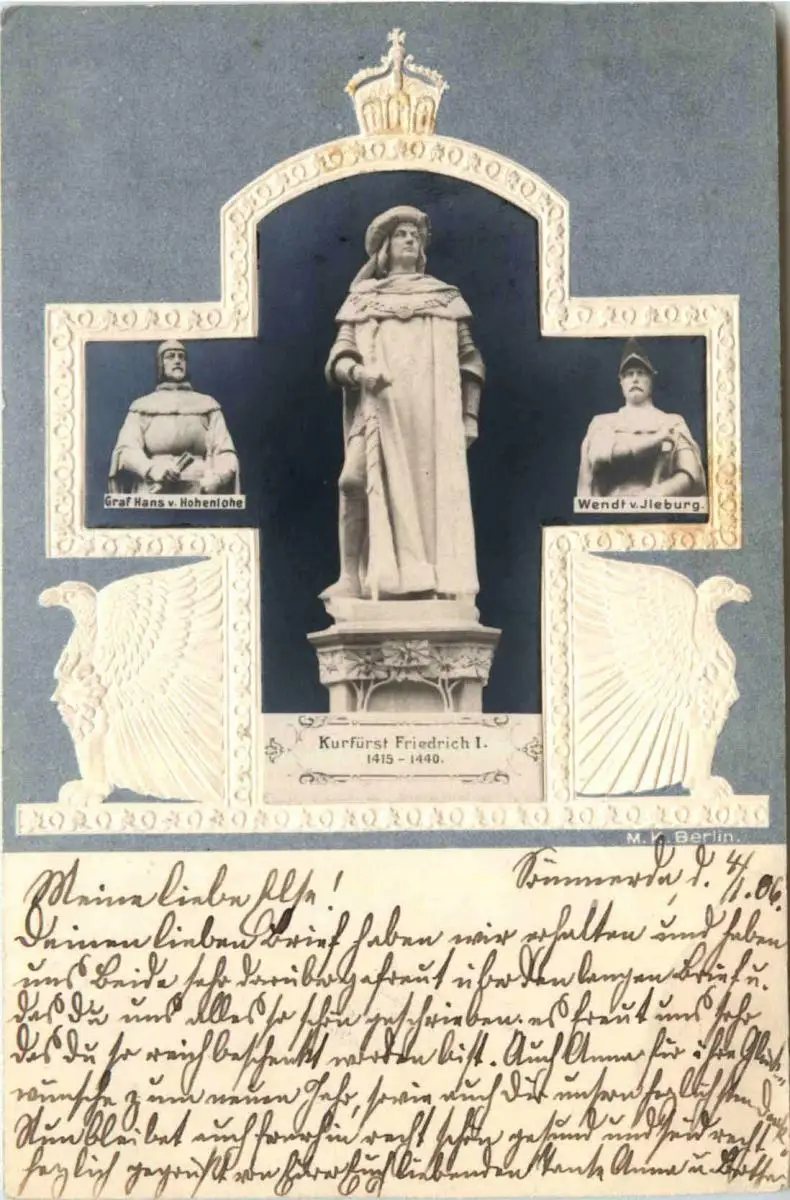 Graf Hans v. Hohenlohe
Wendt v. Jleburg.
Kurfürst Friedrich I.
1415 - 1440.
M. K. Berlin.
Sömmerda, d. 4/1. 06.
Meine liebe Else!
Deinen lieben Brief haben wir erhalten und haben
uns Beide sehr darüber gefreut über den langen Brief u.
das du uns alles so schön geschrieben. es freut uns sehr
das du so reich beschenkt worden bist. Auch Anna für ihre Glück-
wünsche zum neuen Jahr, sowie auch Dir unsern herzlichsten Dank.
Nun bleibet auch fernerhin recht schön gesund und seid recht
herzlich gegrüßt von Eurer Euch liebenden Tante Anna u.